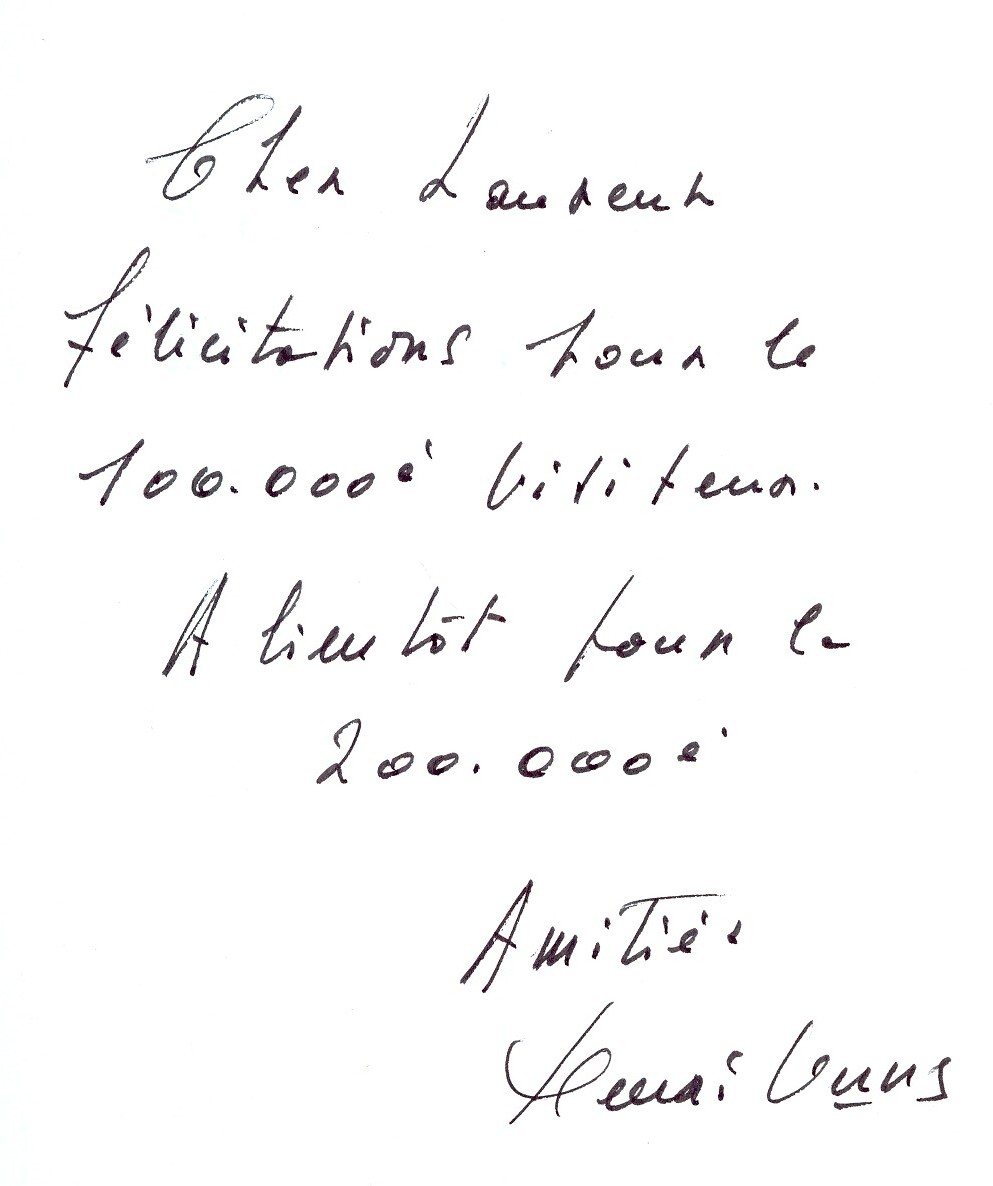 Cher Laurent
félicitations pour le
100.000è visiteur.
A bientôt pour le
200.000è
Amitiés
Henri Vernes